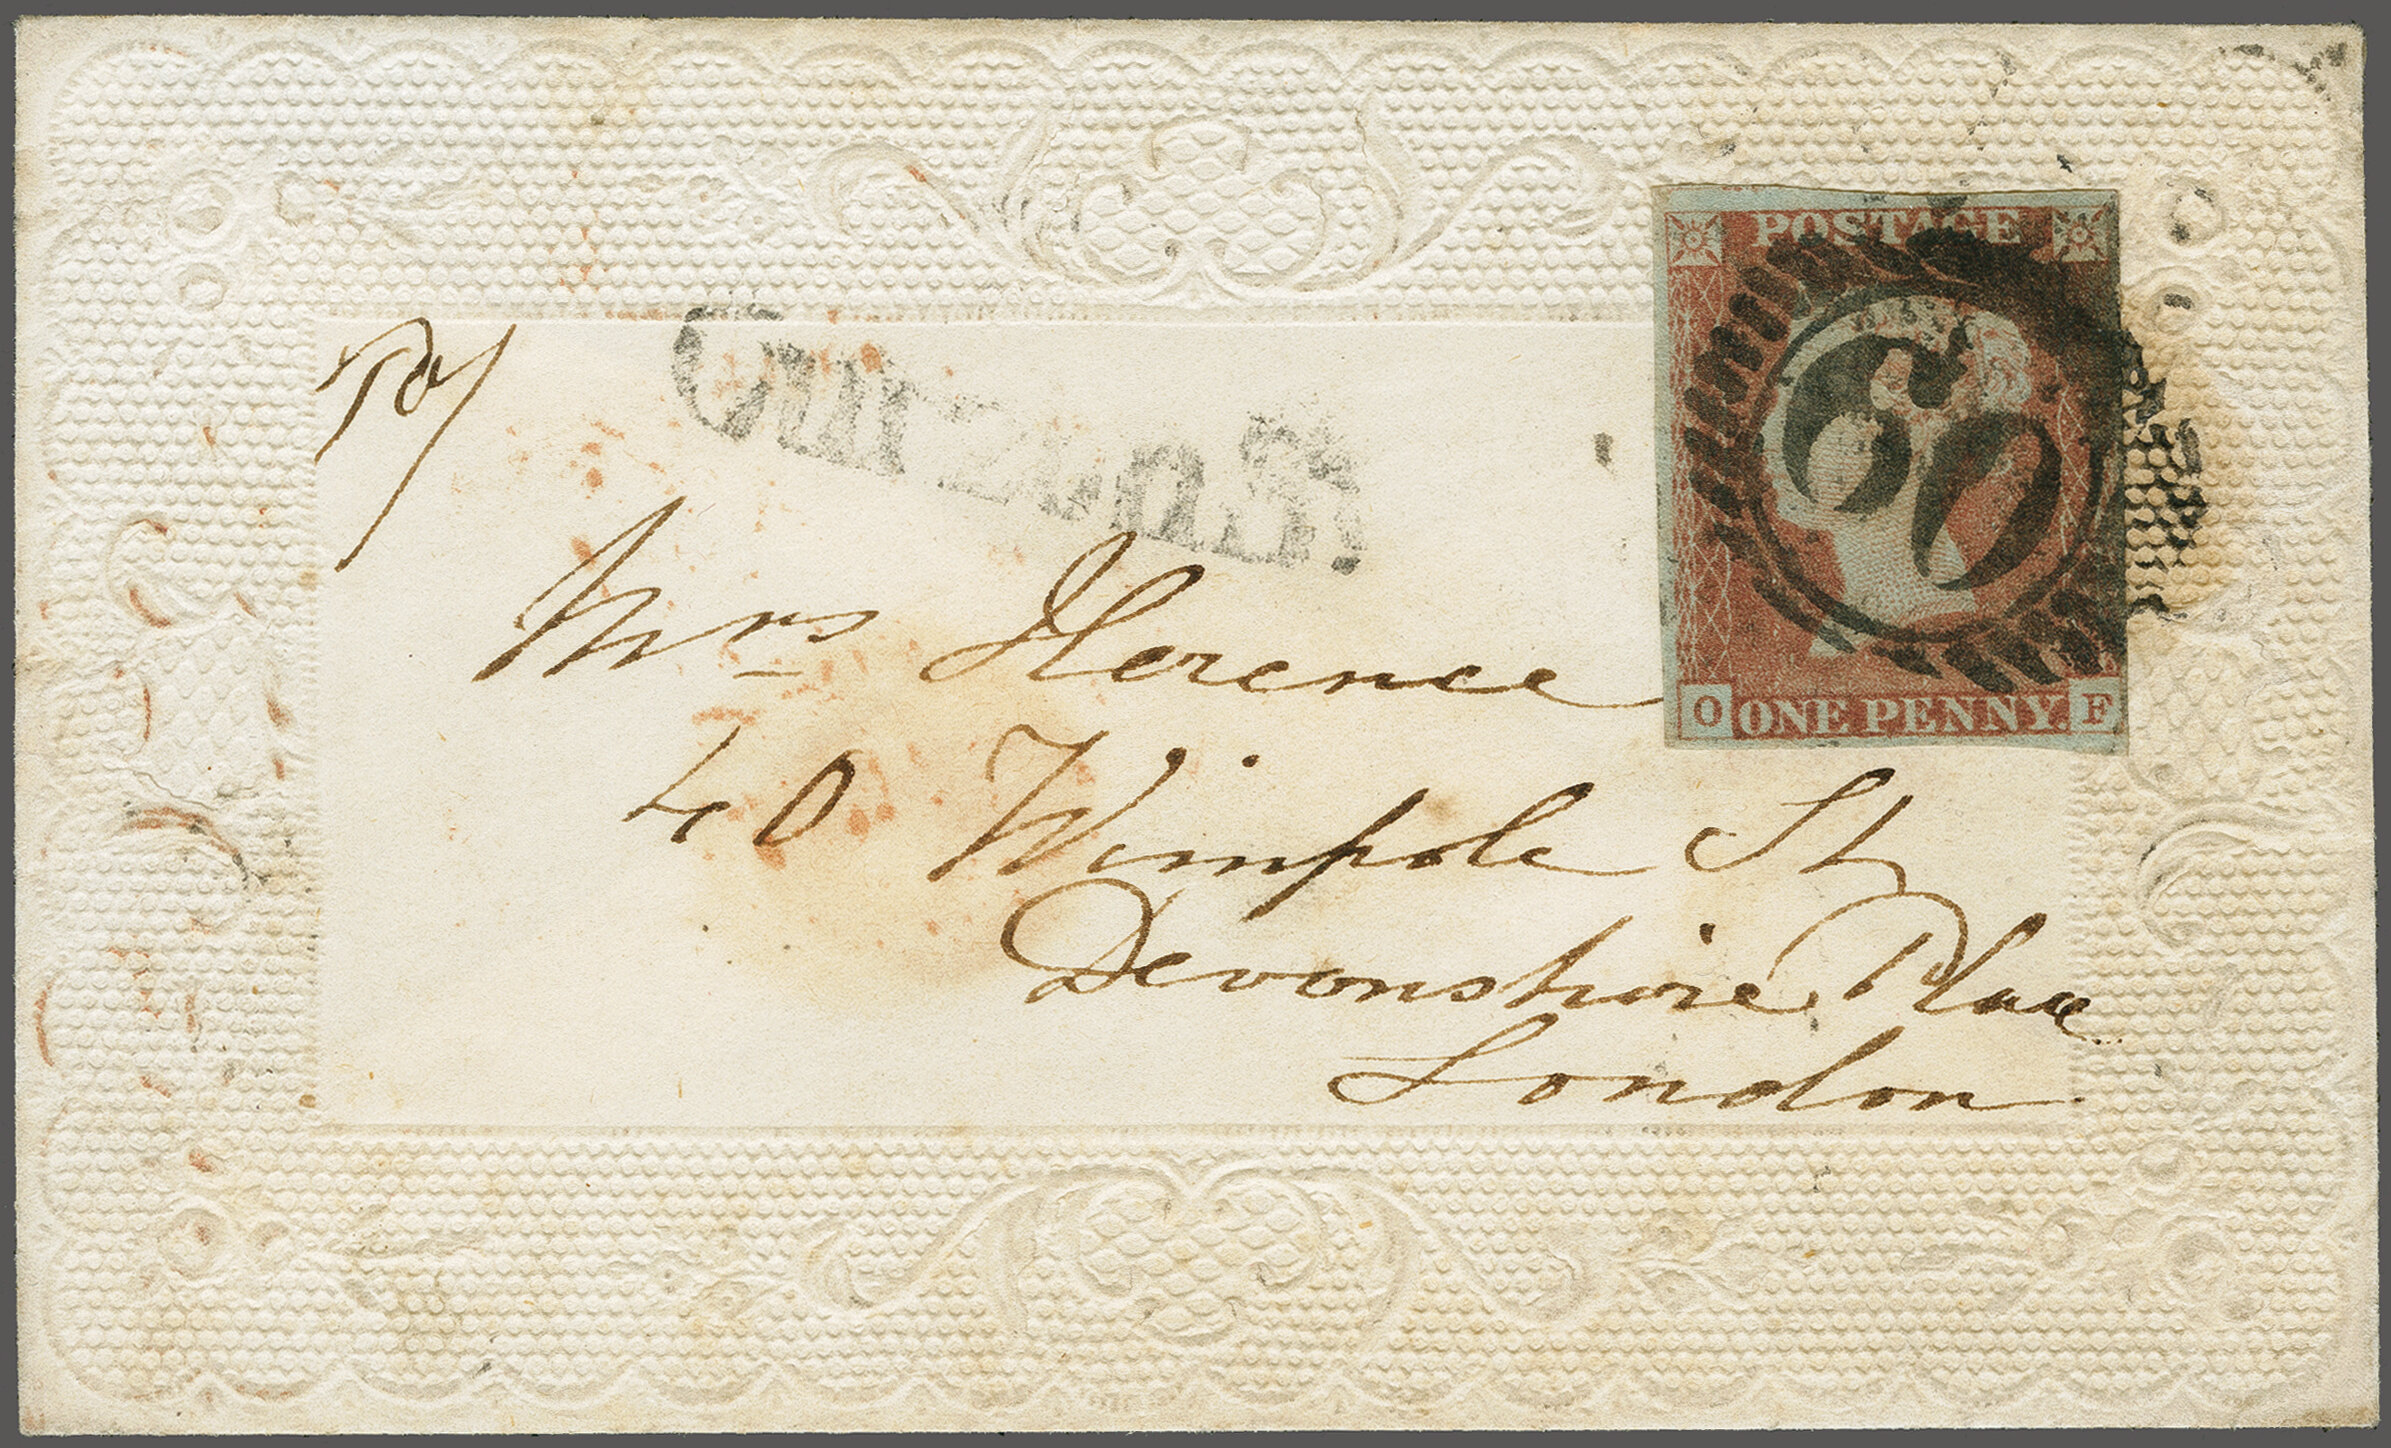 POSTAGE
60
O ONE PENNY. F
Curzon St
Mrs Florence
40 Wimpole St
Devonshire Place
London